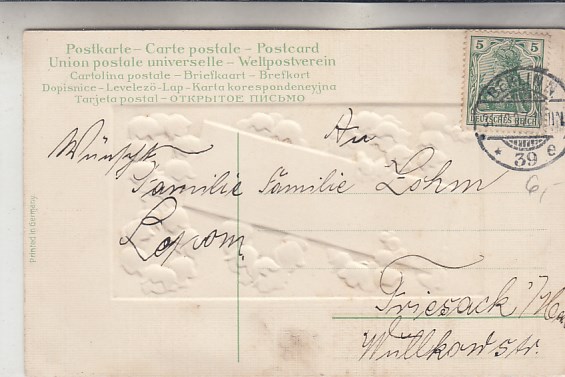 Postkarte – Carte postale – Postcard
Union postale universelle – Weltpostverein
Cartolina postale – Briefkaart – Brefkort
Dopisnice – Levelező-Lap – Karta korespondencyjna
Tarjeta postal – ОТКРЫТОЕ ПИСЬМО
5 5
DEUTSCHES REICH
BERLIN N
* 39 e
6,-
Printed in Germany.
Wünscht
Familie
An
Familie Lohm
Friesack
str.